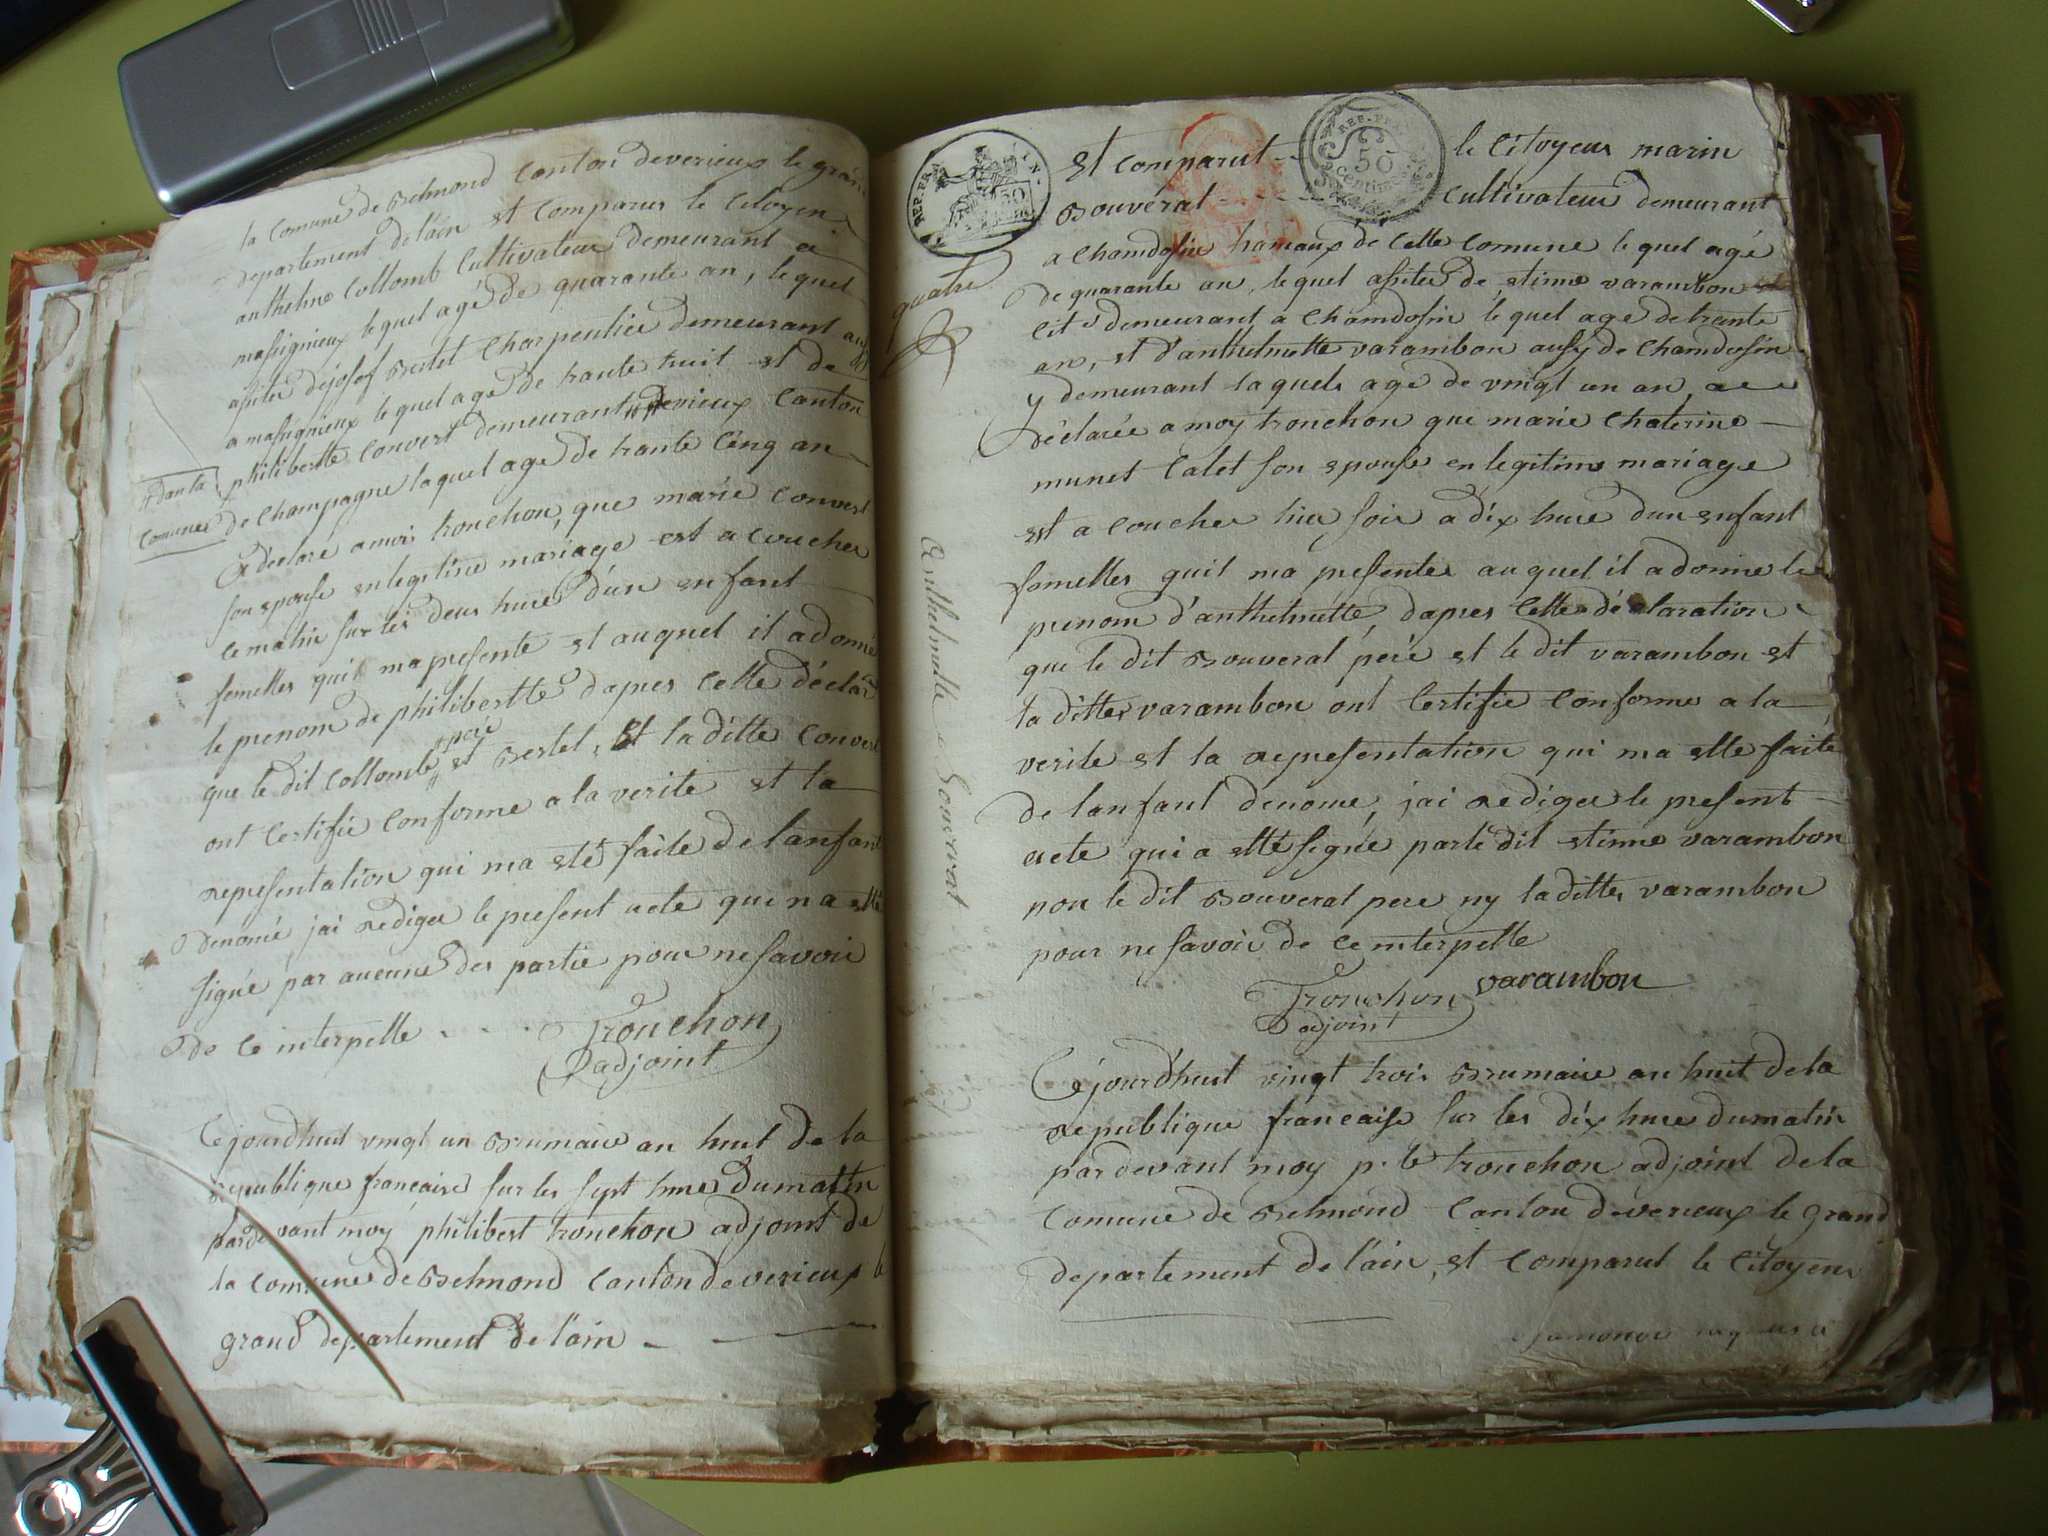 la Comune de Belmond Canton de verieux le grand
departement de l'ain et Comparus le Citoyen
anthelme Collomb Cultivateur demeurant a
massignieux lequel agé de quarante an, lequel
assiter de josef Bertet Charpentier demeurant aussy
a massignieux lequel age de trante huit et de
philibertte Convert demeurant # verieux Canton
# dan la
Comune
de Champagne laquel age de trante Cinq an
a déclaré a moi tronchon, que marie Convert
son epouse en legitime mariage est acoucher
ce matin sur les deux hure d'un enfant
femelles quil ma presente et auquel il a donné
le prenom de philibertte dapres Cette déclar
que le dit Collomb pére et Bertet, Et la ditte Convert
ont Certifié Conforme a la verite et la
representation qui ma eté faite de lanfant
denomé jai rediger le present acte qui n a etté
signé par aucune des partie pour ne savoir
de ce interpelle
Tronchon
adjoint
Cejourdhuit vingt un Brumaire an huit de la
republique francaise sur les sept hure du matin
pardevant moy philibert tronchon adjoint de
la comune de Belmond Canton de verieux le
grand departement de l'ain
REP. FRA.
quatre
Anthelmette Bouverat
REP. FRA.
50
Centimes
et comparut le Citoyen marin
Bouverat Cultivateur demeurant
a Chamdosin hamaux de Cette Comune lequel agé
de quarante an, lequel assiter de etinne varambon
Cit. demeurant a Chamdosin lequel age de trante
an, et d'anthelmette varambon aussy de Chamdosin
y demeurant laquele age de vingt un an
déclarée a moy tronchon que marie Chaterine
munet Calet son epouse en legitime mariage
est acoucher hier soir a dix hure dun enfant
femelles quil ma presenter auquel il a donne le
prenom d'anthelmette, dapres Cette déclaration
que le dit Bouverat pére et le dit varambon et
la ditte varambon ont Certifie Conforme a la
verite et la representation qui ma etté faite
de lanfant denomé, jai rediger le present
acte qui a etté signé par le dit etinne varambon
non le dit Bouverat pere ny la ditte varambon
pour ne savoir de ce interpelle
Tronchon varambon
adjoint
Cejourdhuit vingt trois Brumaire an huit de la
republique francaise sur les dix hure du matin
pardevant moy p. b. tronchon adjoint de la
Comune de Belmond Canton de verieux le grand
departement de l'ain, et Comparut le Citoyen